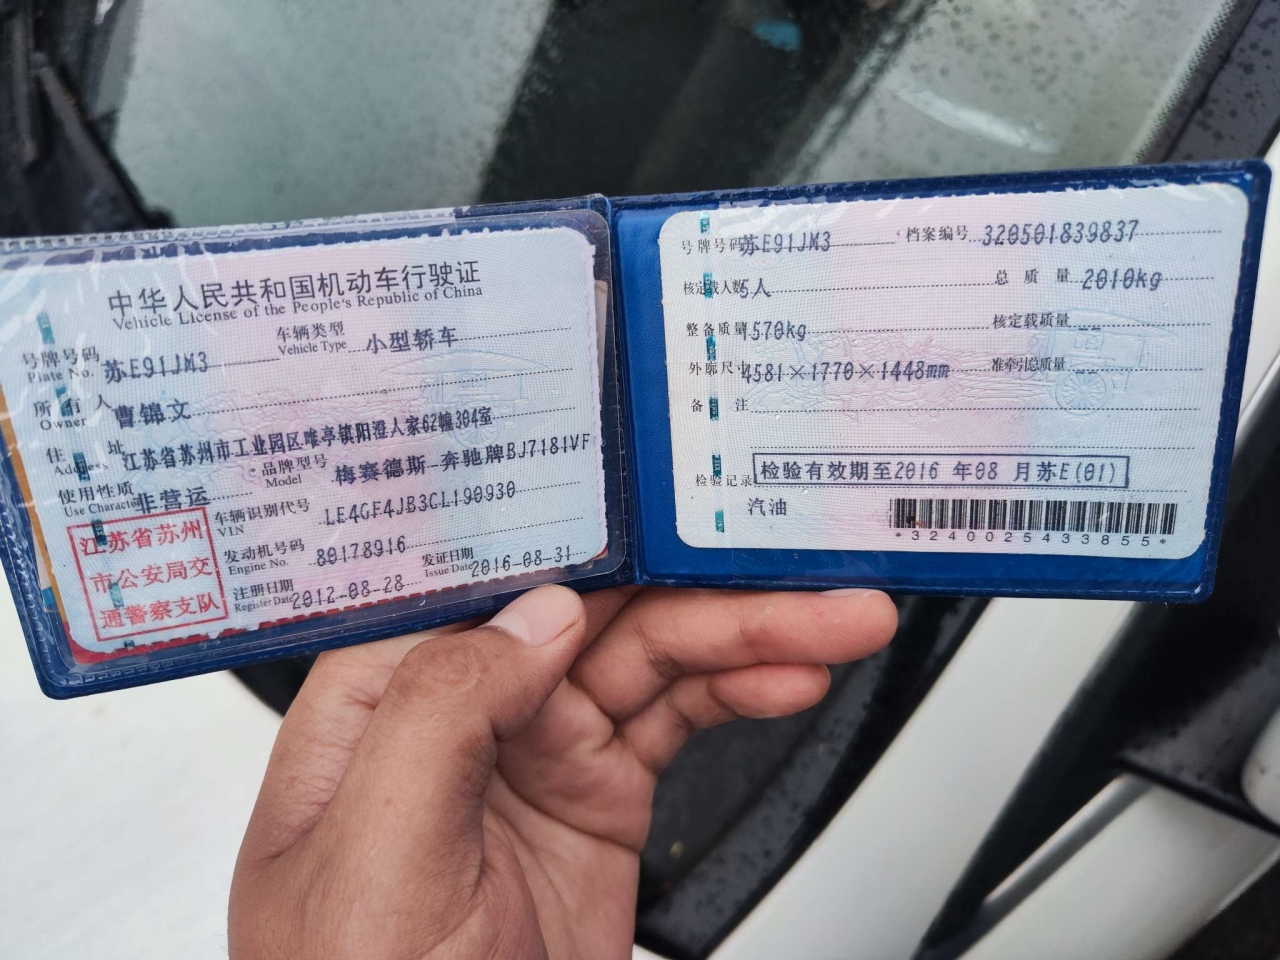 中华人民共和国机动车行驶证
Vehicle License of the People's Republic of China
号牌号码 苏E91JM3 车辆类型 小型轿车
Plate No. Vehicle Type
所有人 曹锦文
Owner
住址 江苏省苏州市工业园区唯亭镇阳澄人家62幢304室
Address
使用性质 非营运 品牌型号 梅赛德斯-奔驰牌BJ7181VF
Use Character Model
车辆识别代号 LE4GF4JB3CL190930
VIN
发动机号码 80178916
Engine No.
注册日期 2012-08-28 发证日期 2016-08-31
Register Date Issue Date
江苏省苏州
市公安局交
通警察支队
号牌号码 苏E91JM3 档案编号 320501839837
核定载人数 5人 总质量 2010kg
整备质量 1570kg 核定载质量 --
外廓尺寸 4581×1770×1448mm 准牵引总质量 --
备注
检验记录 检验有效期至2016 年08 月苏E(01)
汽油
*3240025433855*